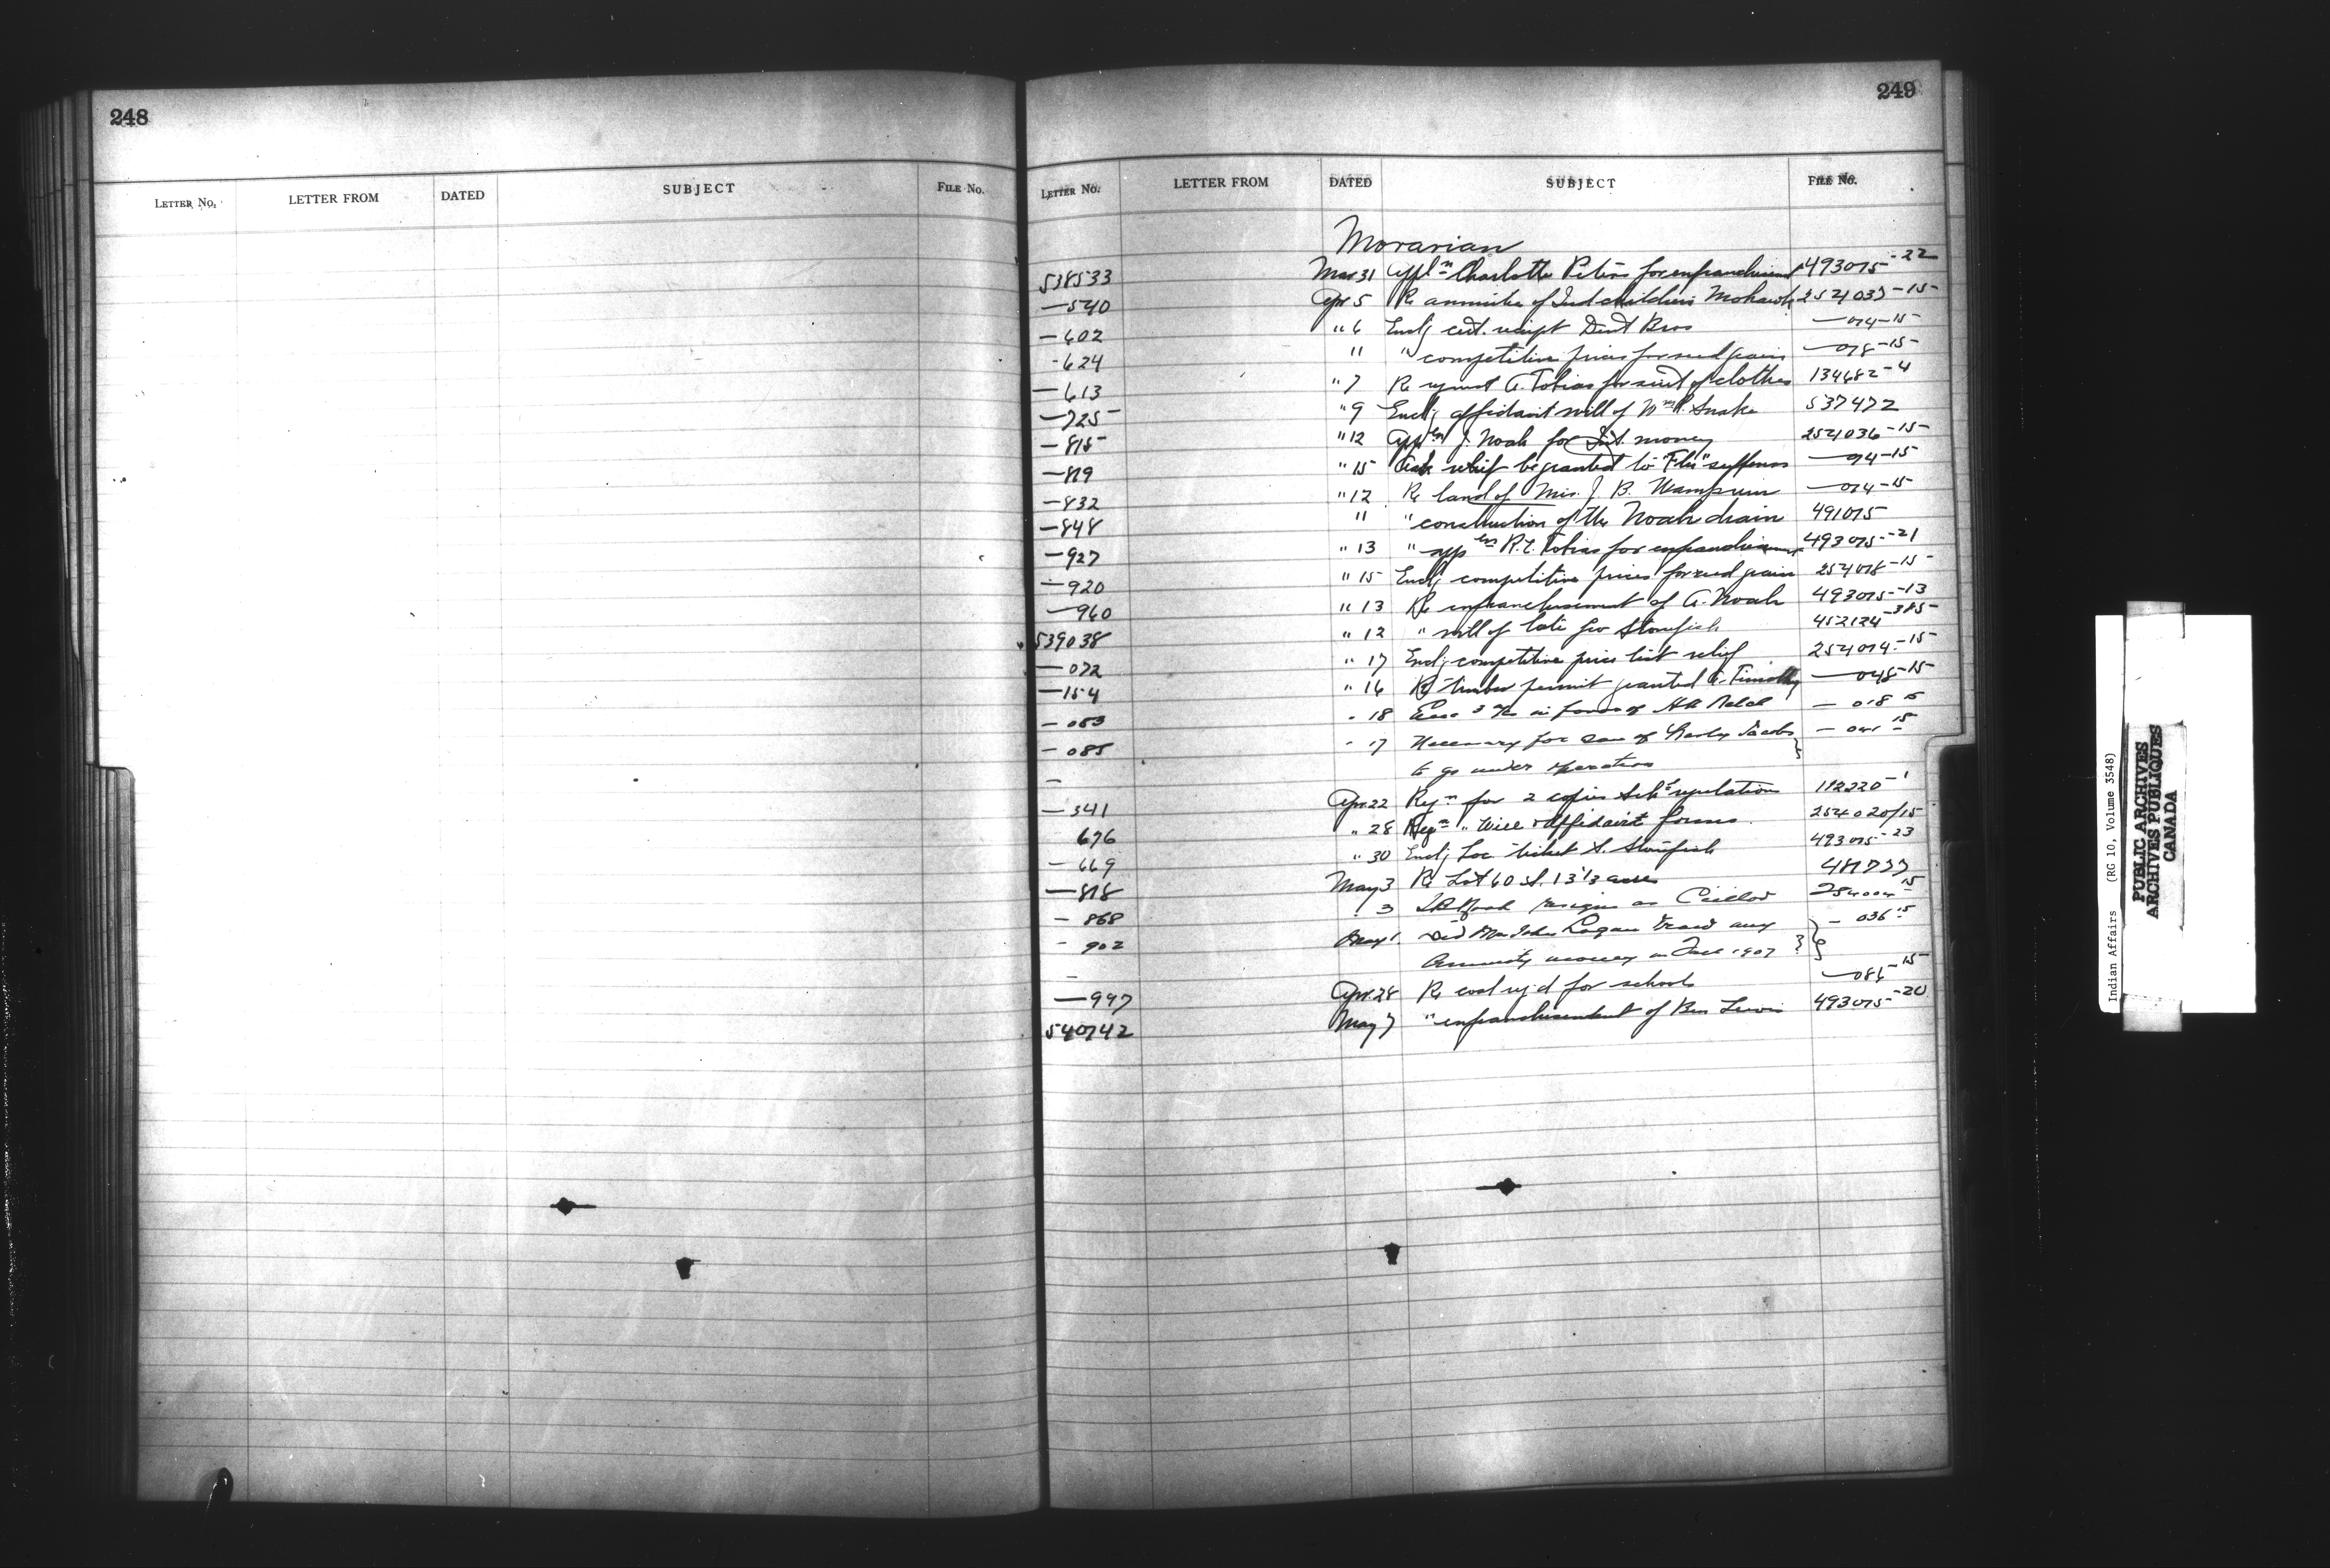 248
LETTER NO. LETTER FROM DATED SUBJECT FILE NO.
249
LETTER NO. LETTER FROM DATED SUBJECT FILE NO.
Moravian
538533 Mar 31 Appln Charlotte Peters for enfranchisement 493075-22
—540 Apr 5 Re annuities of Ind children Mohawk 254037-15
—602 " 6 Encl cert. receipt Dent Bros —074-15
-624 " " competitive prices for seed grain —078-15
—613 " 7 Re request A. Tobias for suit of clothes 134682-4
—725 " 9 Encl affidavit will of Wm P. Snake 537472
—815 " 12 Appln J. Noah for Int. money 254036-15
—819 " 15 Ask relief be granted to "Flu" sufferers —74-15
—832 " 12 Re land of Mrs. J. B. Wampum —014-15
—848 " " construction of the Noah drain 491075
—927 " 13 " appln R.E. Tobias for enfranchisement 493075-21
—920 " 15 Encl competitive prices for seed grain 254078-15
—960 " 13 Re enfranchisement of A. Noah 493075-13
539038 " 12 " will of late Geo Stonefish 452124-385
—072 " 17 Encl competitive price list relief 254074-15
—154 " 16 Re timber permit granted A. Timothy —048-15
—083 " 18 in favor of —018 15
—085 " 17 Necessary for son of Jacobs 15
— to go under operation
—341 Apr 22 Reqn for 2 copies Sch regulations 112220-1
676 " 28 Reqn " Will & affidavit forms 254020/15
—669 " 30 Encl Loc ticket S. Stonefish 493075-23
—818 May 3 Re Lot 60 st. 13 1/3 acres
—868 " 3 resigns as Cncillor 254004 15
—902 May 1 Did Mrs John Logan draw any —036 15
— Annuity money in Fall 1907?
—997 Apr 24 Re coal req'd for schools —086-15
540742 May 7 " enfranchisement of Ben Lewis 493075-20
Indian Affairs (RG 10, Volume 3548)
PUBLIC ARCHIVES
ARCHIVES PUBLIQUES
CANADA